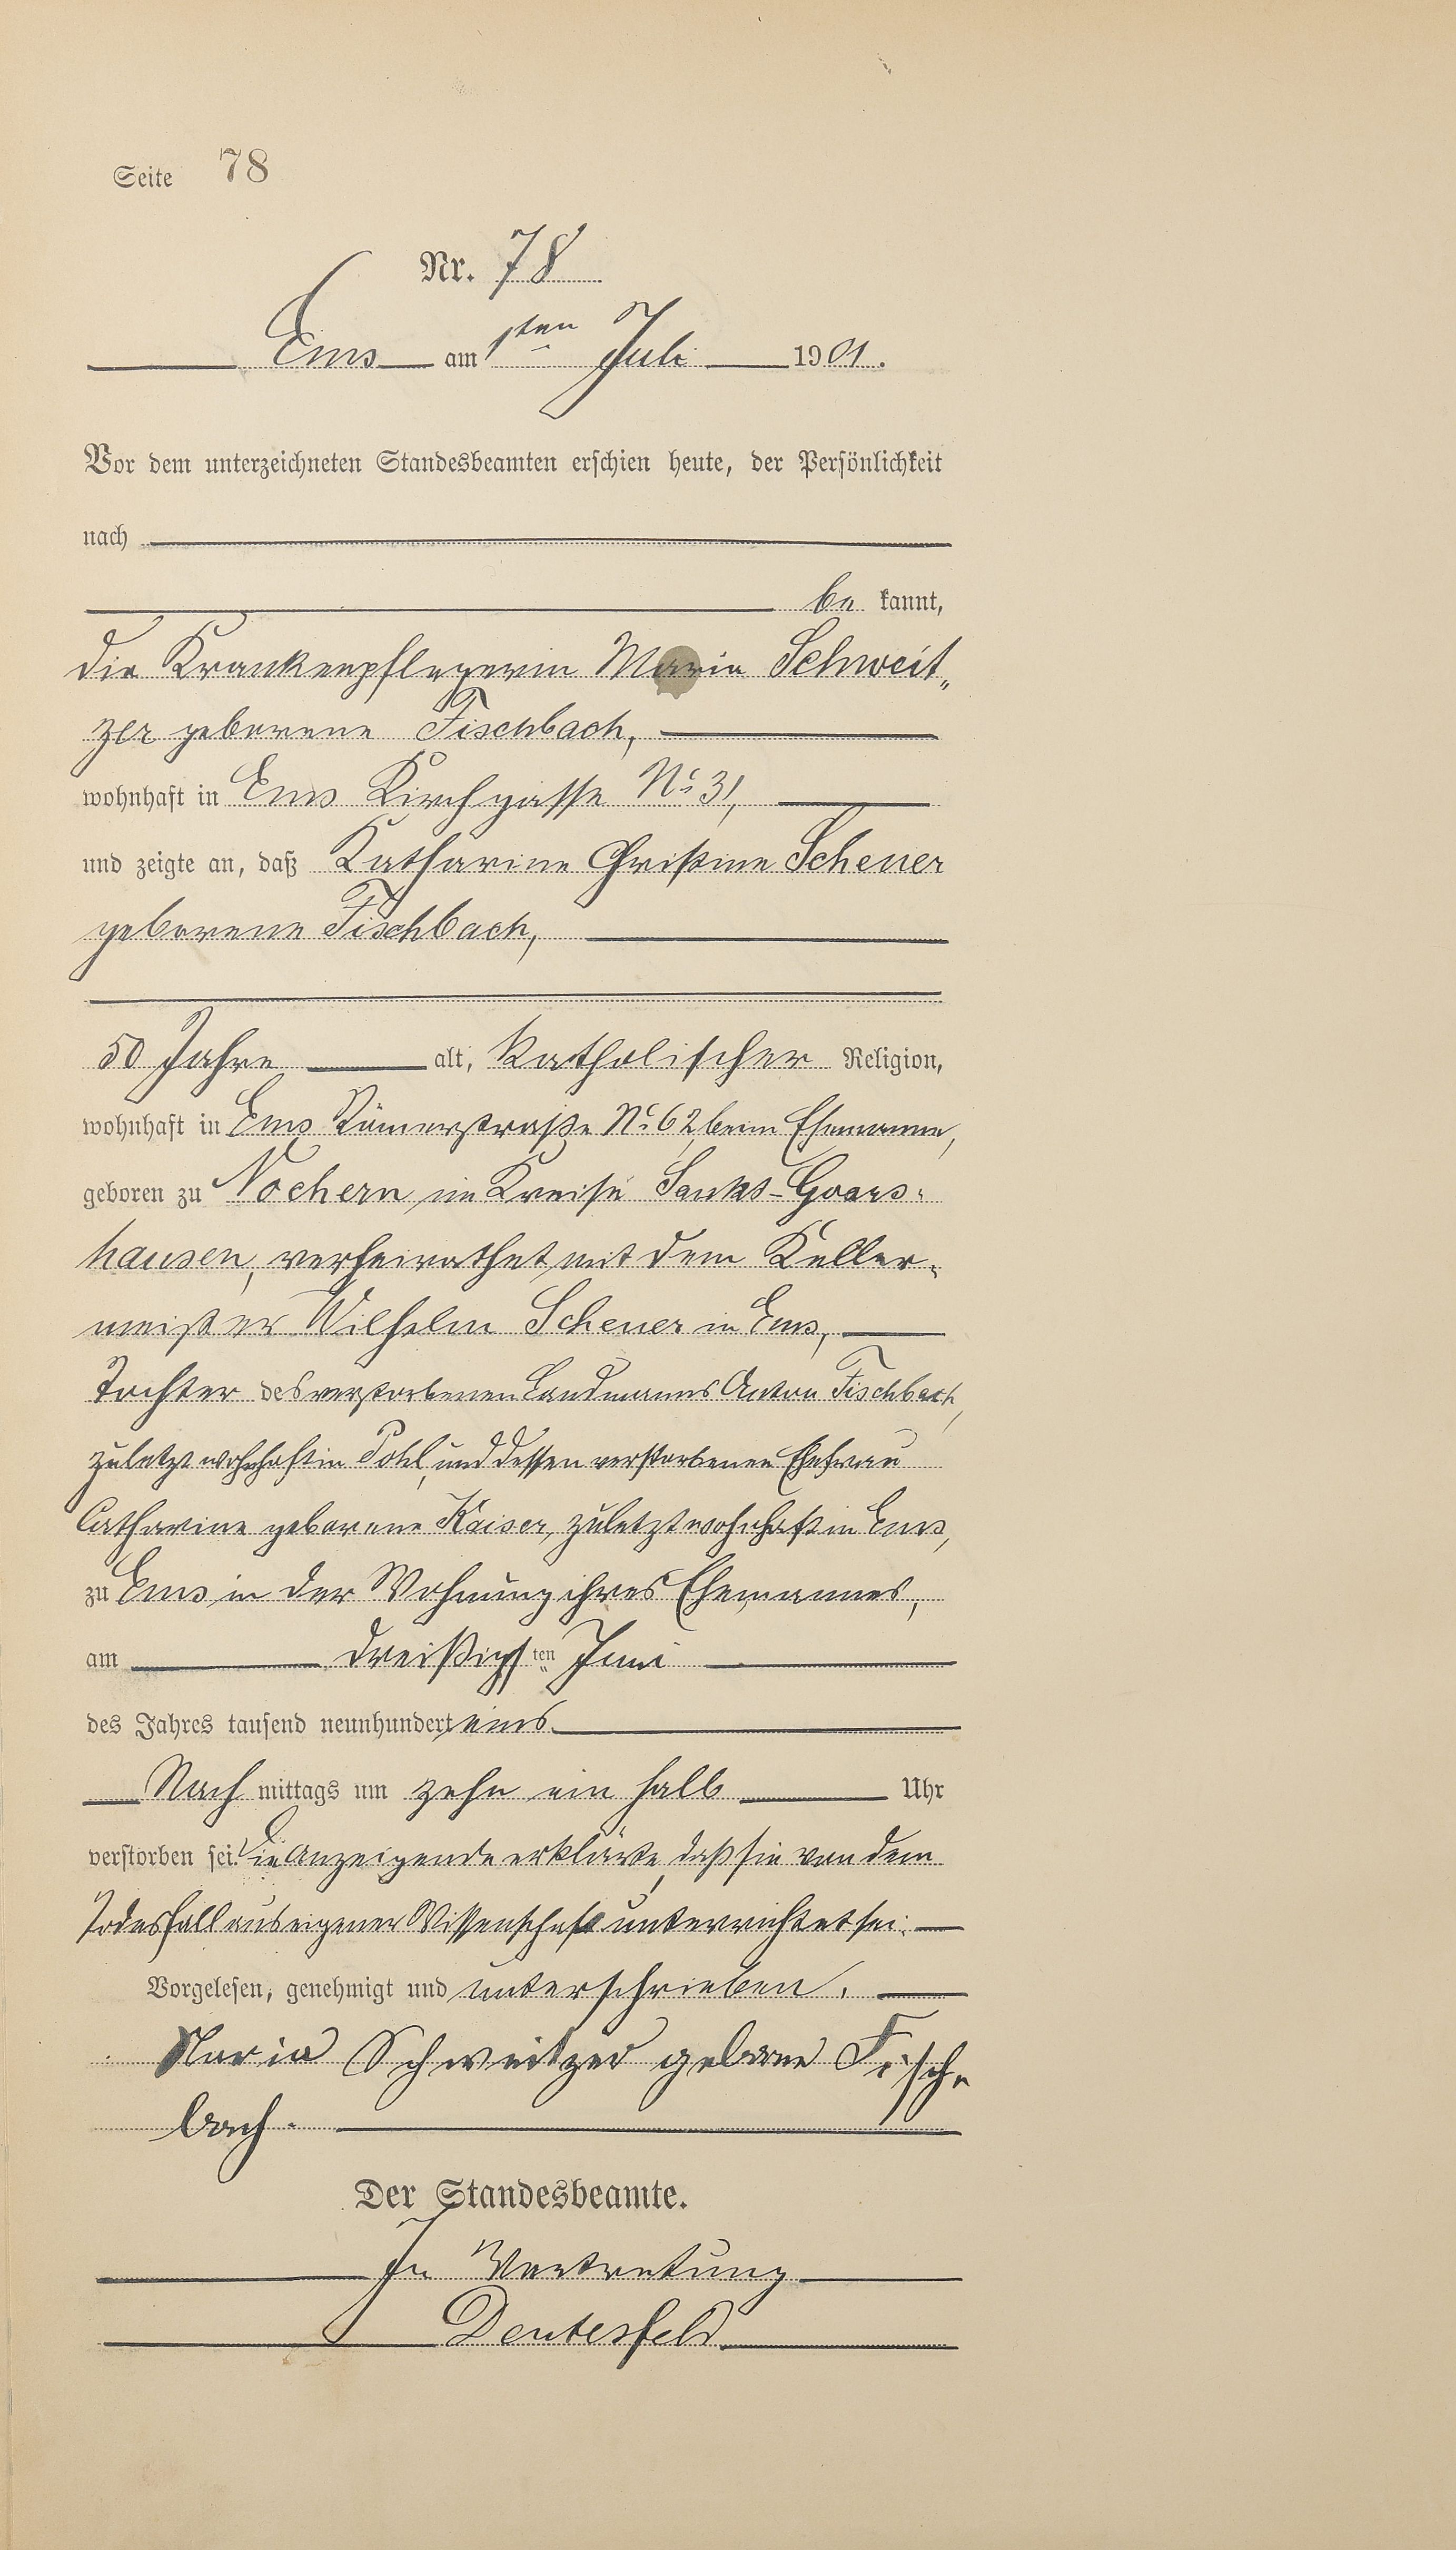 Seite 78
Nr. 78
Ems am 1ten Juli 1901.
Vor dem unterzeichneten Standesbeamten erschien heute, der Persönlichkeit
nach
be kannt,
die Krankenpflegerin Maria Schweit„
zer geborene Fischbach,
wohnhaft in Ems Kirchgasse No 31,
und zeigte an, daß Katharine Christine Scheuer
geborene Fischbach,
50 Jahre alt, katholischer Religion,
wohnhaft in Ems Römerstraße No 62, beim Ehemanne,
geboren zu Nochern, im Kreise Sankt-Goars-
hausen, verheirathet mit dem Keller-
meister Wilhelm Scheuer in Ems,
Tochter des verstorbenen Landmanns Anton Fischbach,
zuletzt wohnhaft in Pohl, und dessen verstorbenen Ehefrau
Catharine geborene Kaiser, zuletzt wohnhaft in Ems,
zu Ems in der Wohnung ihres Ehemannes,
am dreißigsten Juni
des Jahres tausend neunhundert eins
Nach mittags um zehn ein halb Uhr
verstorben sei. Die Anzeigende erklärte, daß sie von dem
Todesfall aus eigener Wissenschaft unterrichtet sei.
Vorgelesen, genehmigt und unterschrieben.
Maria Schweitzer geborne Fisch„
bach.
Der Standesbeamte.
In Vertretung
Deutesfeld